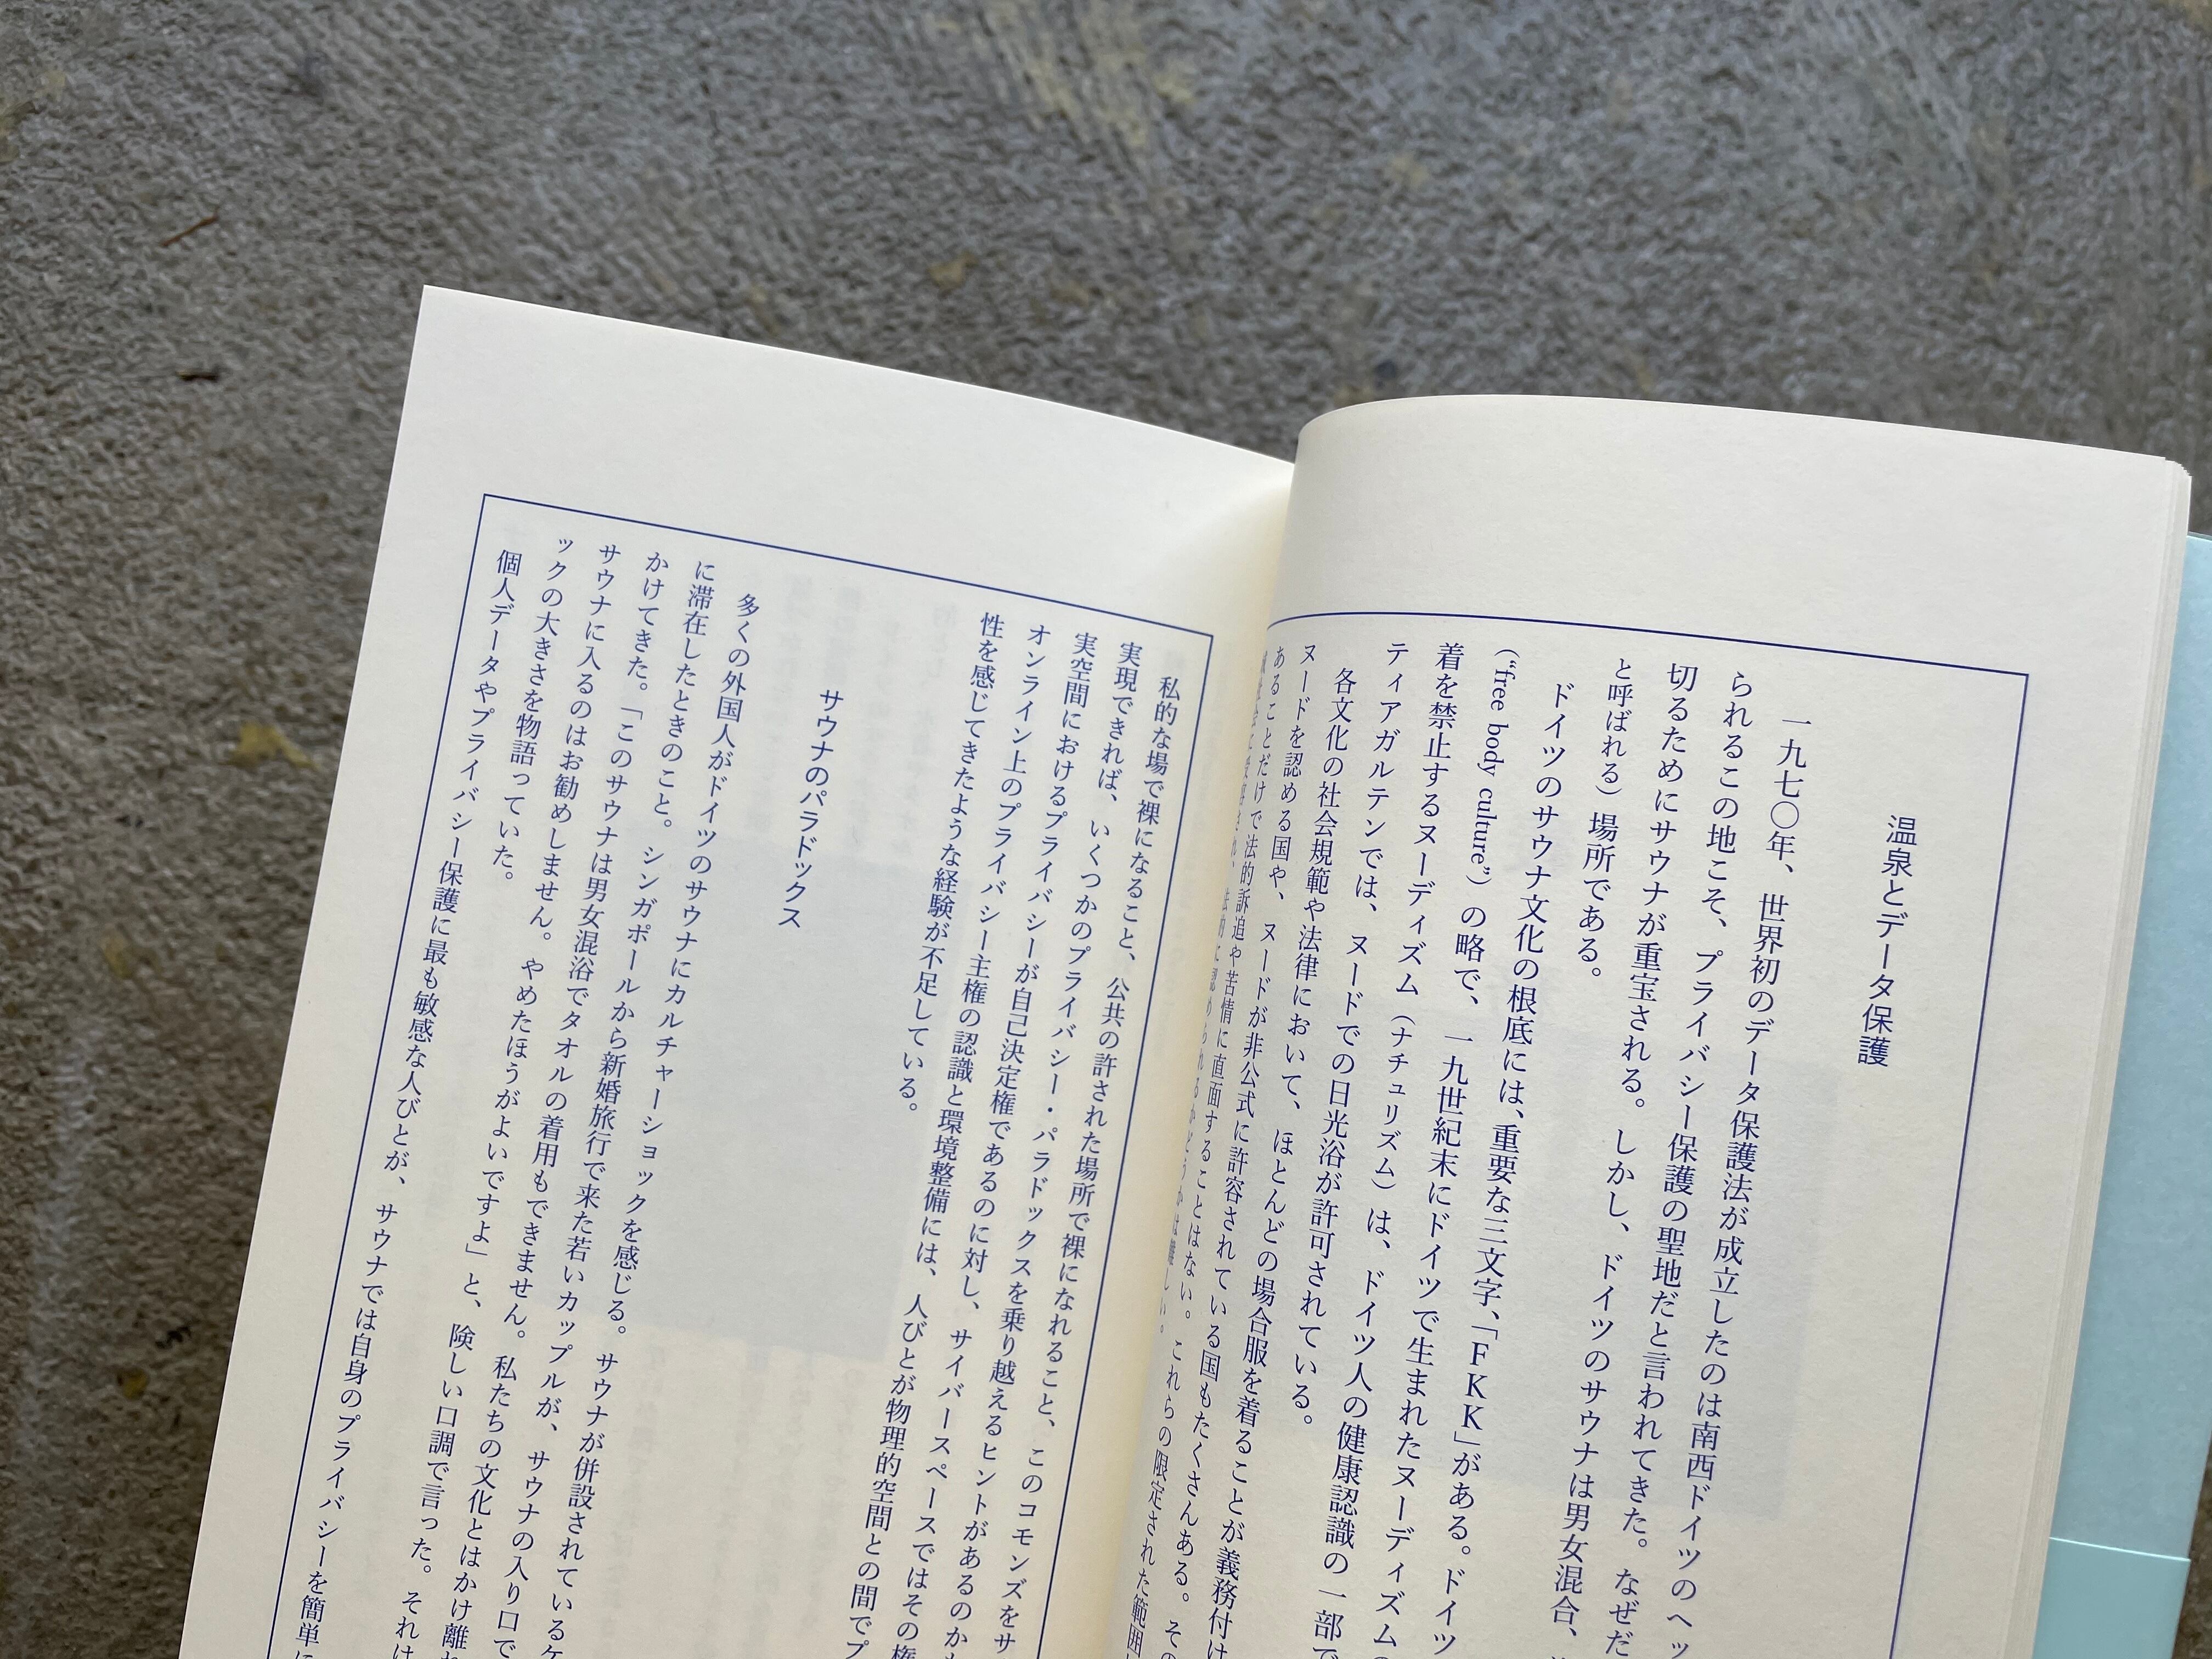 温泉とデータ保護
一九七〇年、世界初のデータ保護法が成立したのは南西ドイツのヘッ
られるこの地こそ、プライバシー保護の聖地だと言われてきた。なぜだ
切るためにサウナが重宝される。しかし、ドイツのサウナは男女混合、
と呼ばれる）場所である。
ドイツのサウナ文化の根底には、重要な三文字、「FKK」がある。ドイツ
（“free body culture”）の略で、一九世紀末にドイツで生まれたヌーディズムの
着を禁止するヌーディズム（ナチュリズム）は、ドイツ人の健康認識の一部で
ティアガルテンでは、ヌードでの日光浴が許可されている。
各文化の社会規範や法律において、ほとんどの場合服を着ることが義務付け
ヌードを認める国や、ヌードが非公式に許容されている国もたくさんある。その
あることだけで法的訴追や苦情に直面することはない。これらの限定された範囲
私的な場で裸になること、公共の許された場所で裸になれること、このコモンズをサ
実現できれば、いくつかのプライバシー・パラドックスを乗り越えるヒントがあるのかも
実空間におけるプライバシーが自己決定権であるのに対し、サイバースペースではその権
オンライン上のプライバシー主権の認識と環境整備には、人びとが物理的空間との間でプ
性を感じてきたような経験が不足している。
サウナのパラドックス
多くの外国人がドイツのサウナにカルチャーショックを感じる。サウナが併設されているケ
に滞在したときのこと。シンガポールから新婚旅行で来た若いカップルが、サウナの入り口で
かけてきた。「このサウナは男女混浴でタオルの着用もできません。私たちの文化とはかけ離れ
サウナに入るのはお勧めしません。やめたほうがよいですよ」と、険しい口調で言った。それは
ックの大きさを物語っていた。
個人データやプライバシー保護に最も敏感な人びとが、サウナでは自身のプライバシーを簡単に